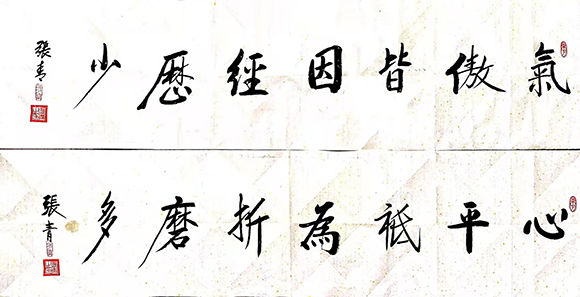 氣傲皆因經歷少
張青
心平祗為折磨多
張青